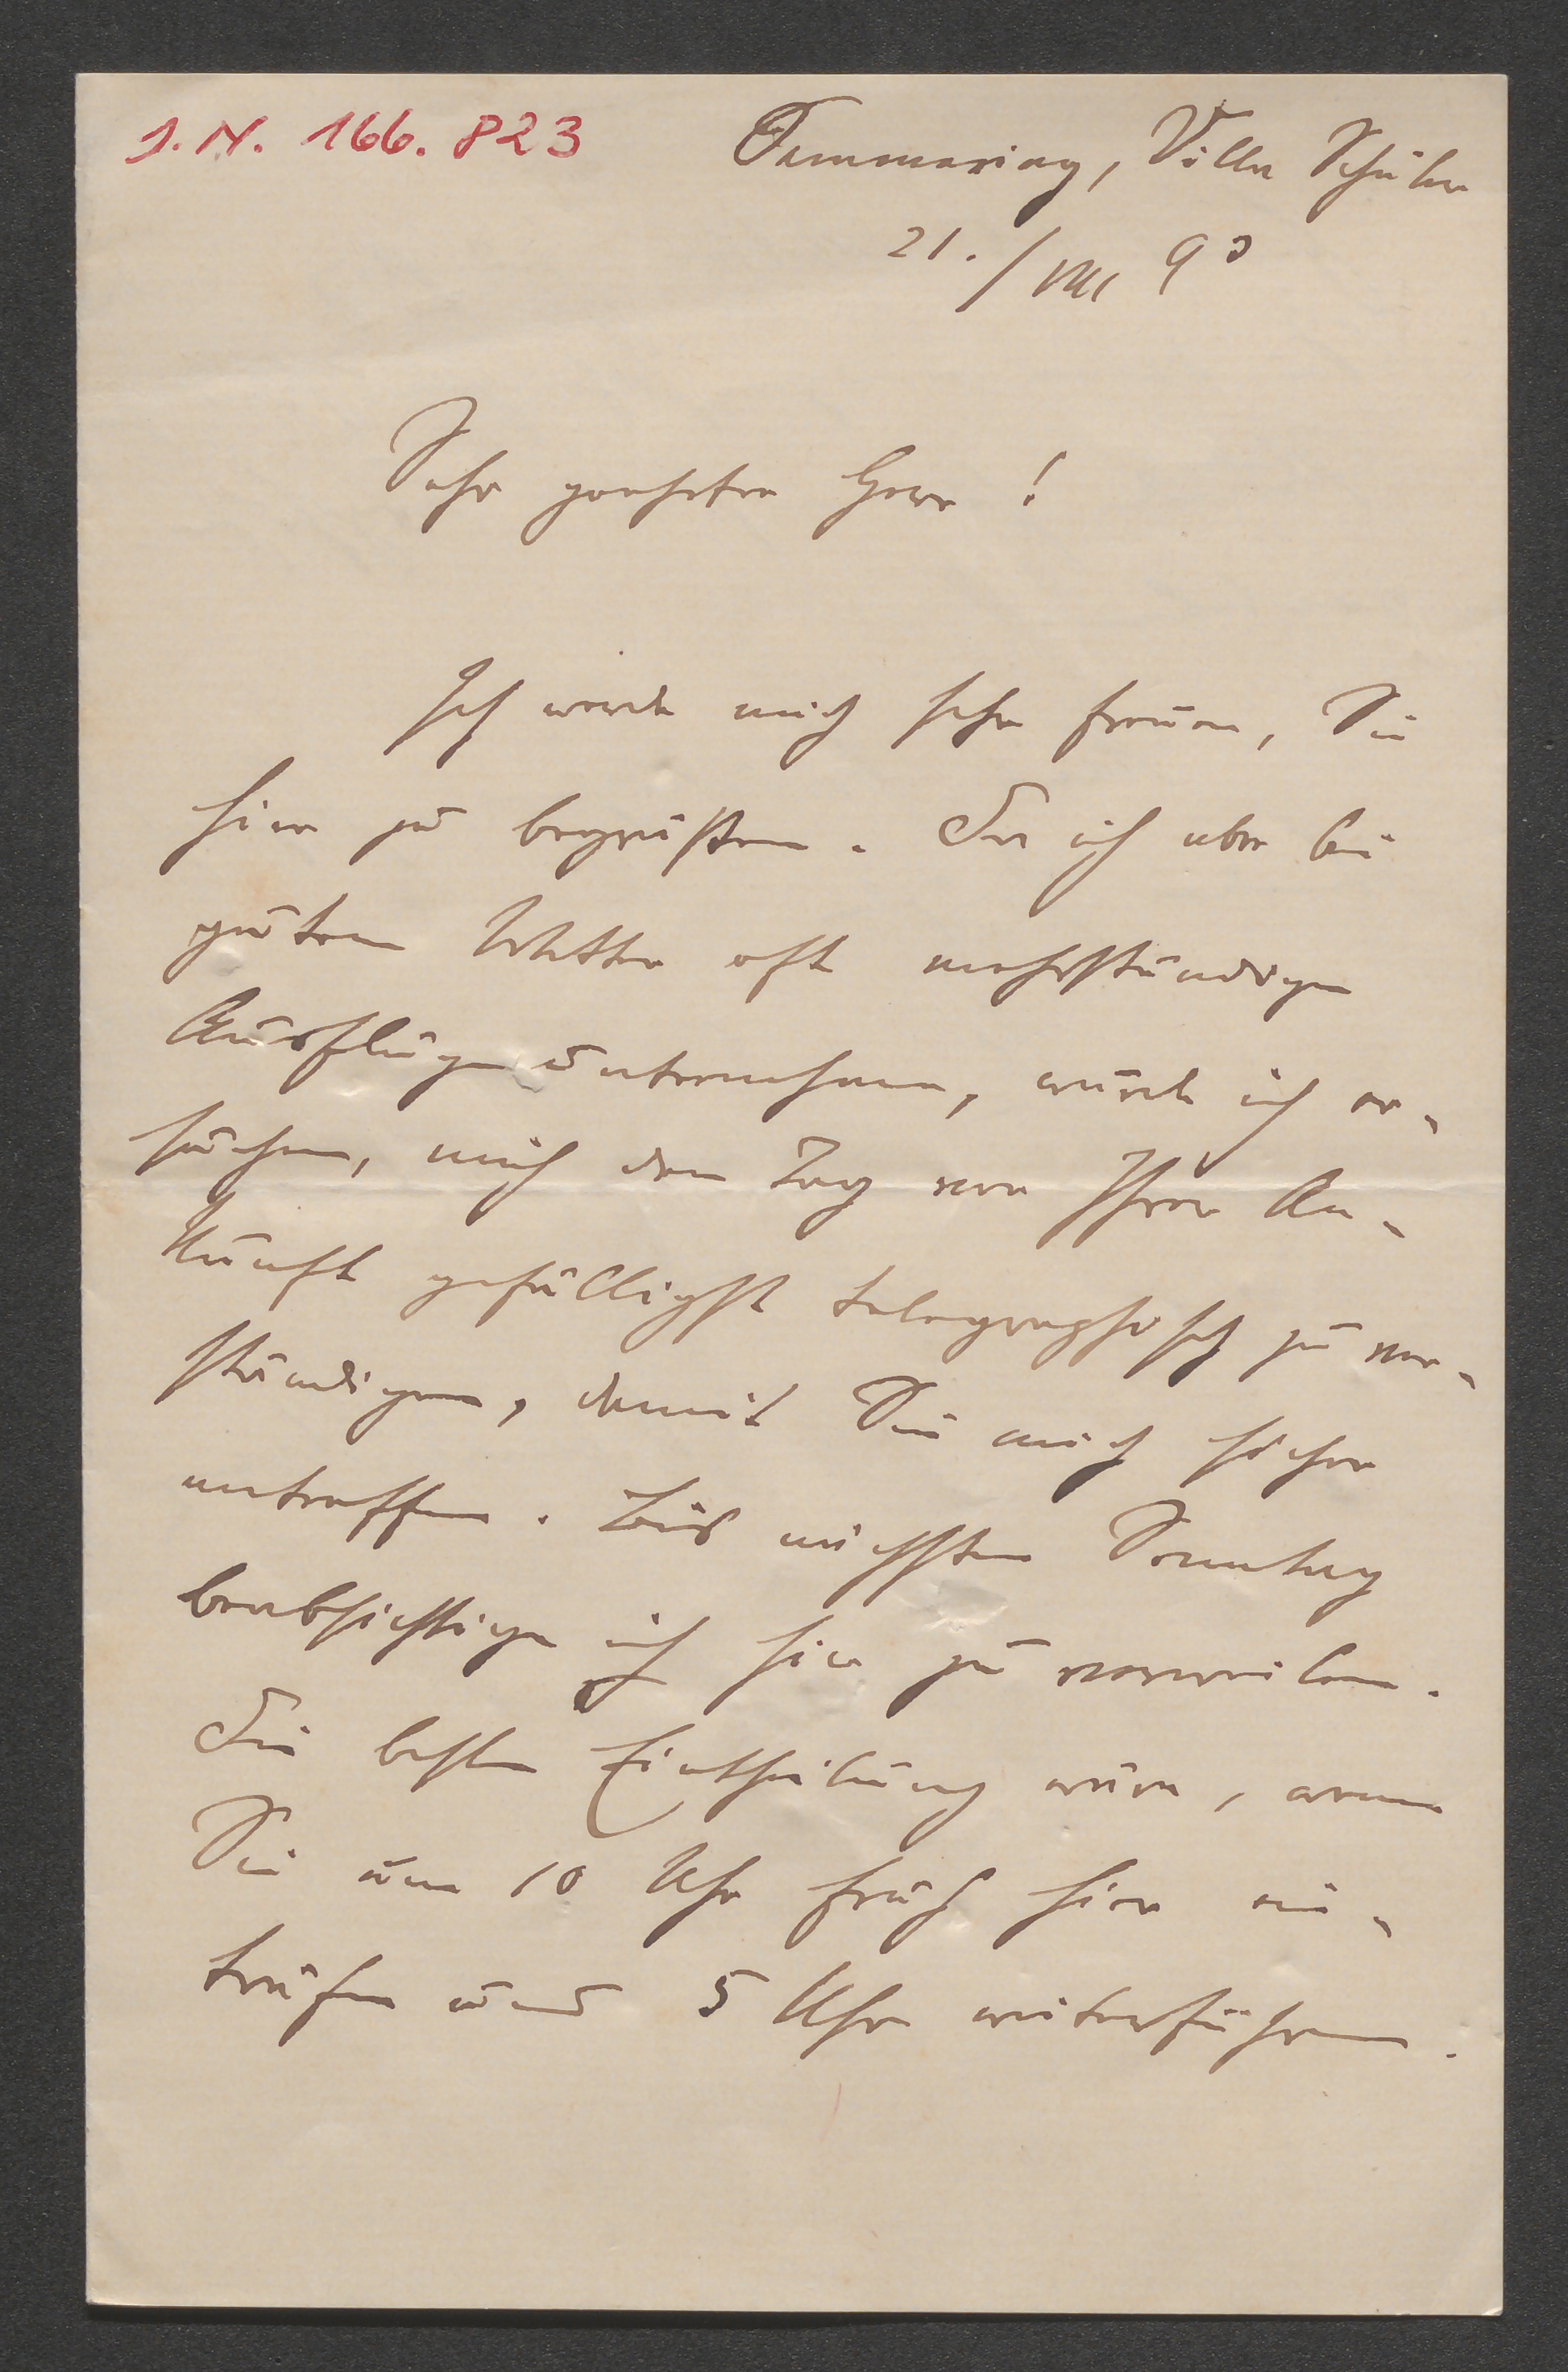 J.N. 166.823
Semmering, Villa Schüler
21./VIII 90
Sehr geehrter Herr!
Ich werde mich sehr freuen, Sie
hier zu begrüßen. Da ich aber bei
gutem Wetter oft mehrstündige
Ausflüge unternehme, würde ich er-
suchen, mich den Tag vor Ihrer An-
kunft gefälligst telegraphisch zu ver-
ständigen, damit Sie mich sicher
antreffen. Bis nächsten Sonntag
beabsichtige ich hier zu verweilen.
Die beste Eintheilung wäre, wenn
Sie um 10 Uhr früh hier ein-
träfen und 5 Uhr weiterführen.